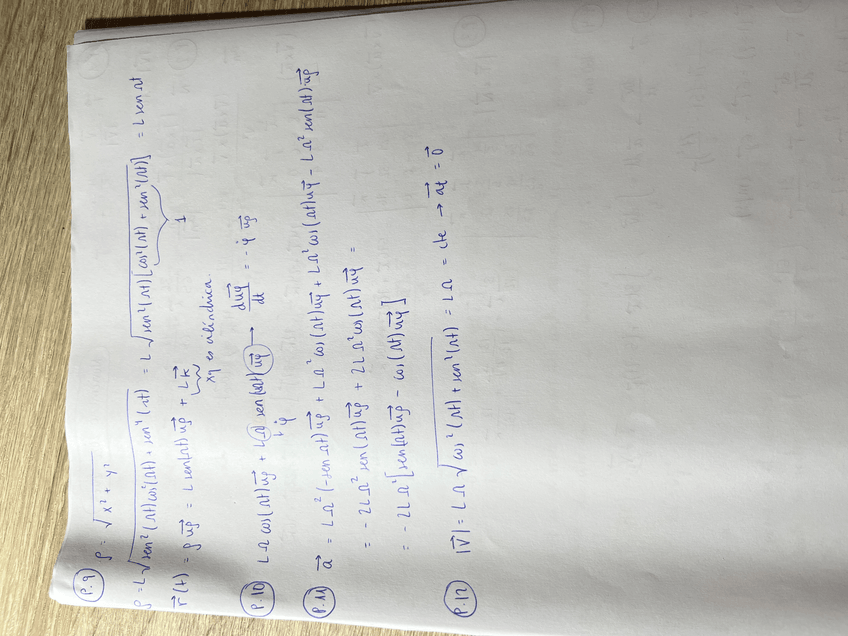 P.9 ρ = √(x² + y²)
ρ = L √(sen²(Ωt)cos²(Ωt) + sen⁴(Ωt)) = L √(sen²(Ωt)[cos²(Ωt) + sen²(Ωt)]) = L sen Ωt
1
r⃗(t) = ρ u⃗ρ = L sen(Ωt) u⃗ρ + L k⃗
xq es cilíndrica.
P.10 LΩ cos(Ωt) u⃗ρ + LΩ sen(Ωt) u⃗φ → du⃗φ/dt = -φ̇ u⃗ρ
φ̇
P.11 a⃗ = LΩ²(-sen Ωt) u⃗ρ + LΩ² cos(Ωt) u⃗φ + LΩ² cos(Ωt) u⃗φ - LΩ² sen(Ωt) u⃗ρ
= -2LΩ² sen(Ωt) u⃗ρ + 2LΩ² cos(Ωt) u⃗φ =
= -2LΩ² [sen(Ωt) u⃗ρ - cos(Ωt) u⃗φ]
P.12 |V⃗| = LΩ √(cos²(Ωt) + sen²(Ωt)) = LΩ = cte → a⃗t = 0⃗